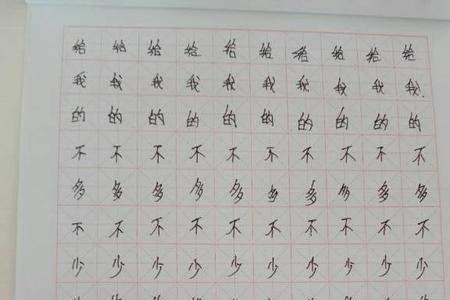 给给给给给给给给给给
我我我我我我我我我我
的的的的的的的的的的
不不不不不不不不不不
多多多多多多多多多多
不不不不不不不不不不
少少少少少少少少少少